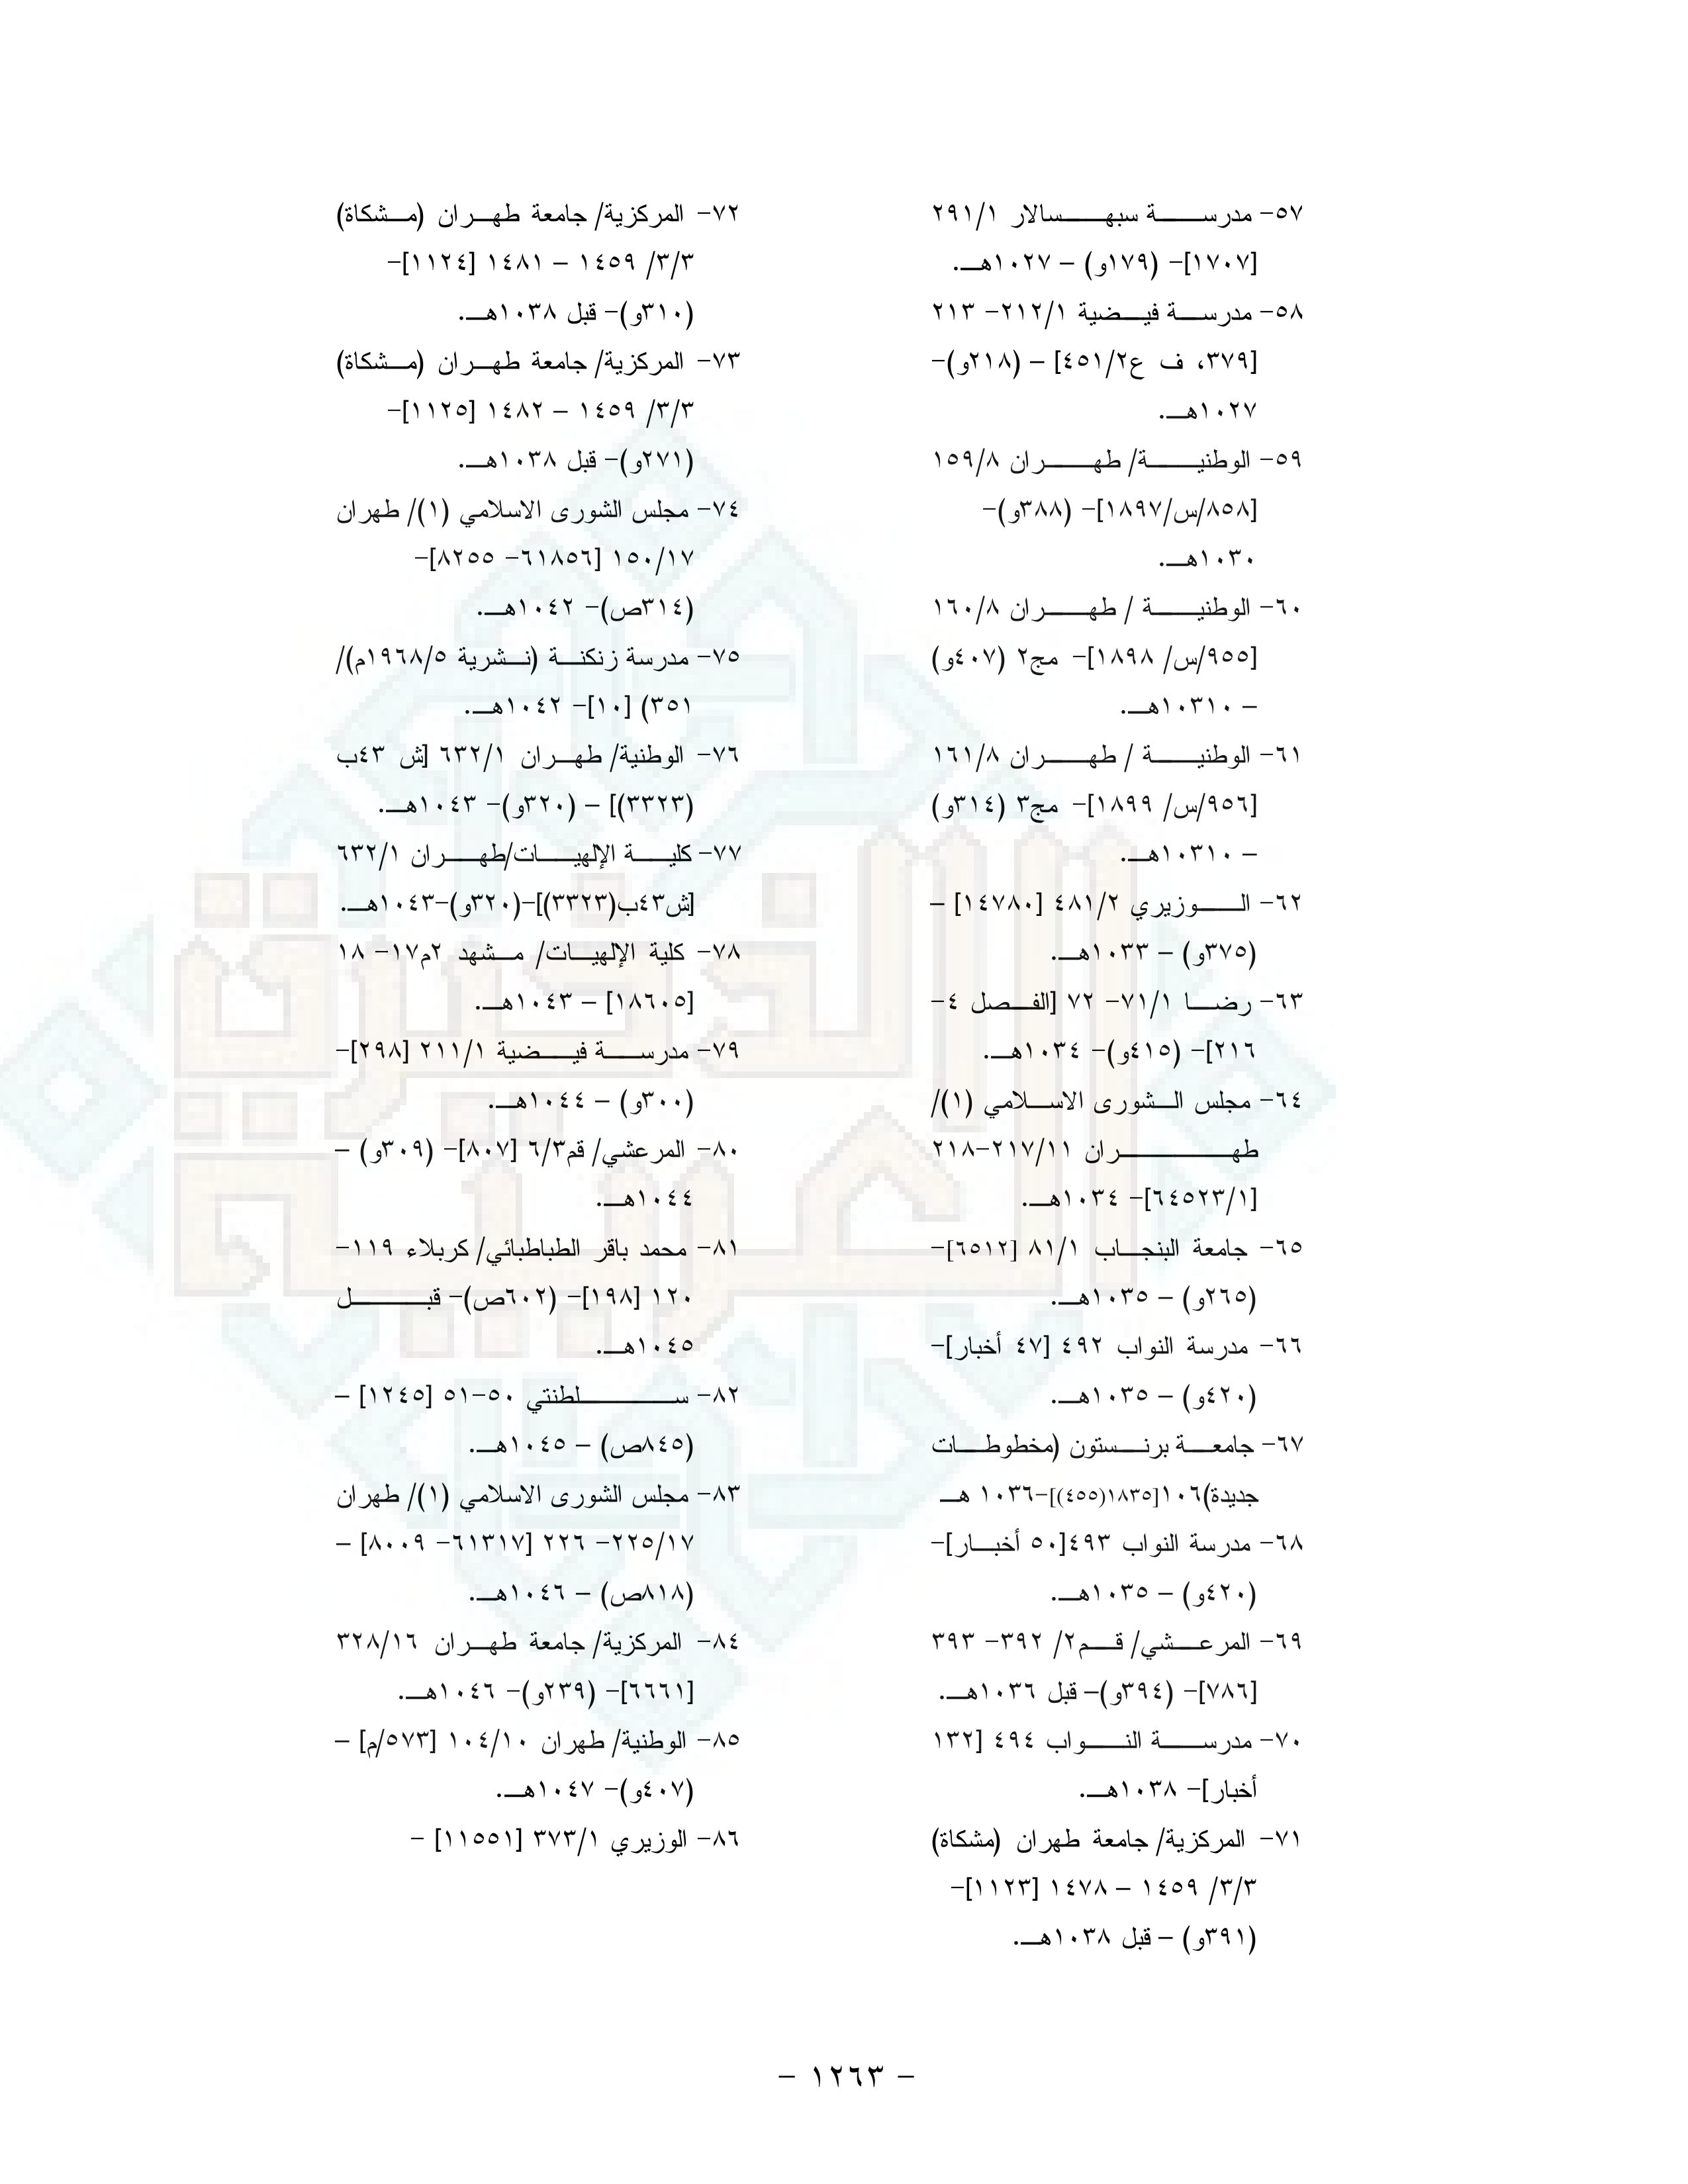 ٥٧- مدرسة سبهسالار ٢٩١/١
[١٧٠٧]- (١٧٩و) – ١٠٢٧هـ.
٥٨- مدرسة فيضية ٢١٢/١- ٢١٣
[٣٧٩، ف ع٤٥١/٢] – (٢١٨و)-
١٠٢٧هـ.
٥٩- الوطنية/ طهران ١٥٩/٨
[٨٥٨/س/١٨٩٧]- (٣٨٨و)-
١٠٣٠هـ.
٦٠- الوطنية / طهران ١٦٠/٨
[٩٥٥/س/ ١٨٩٨]- مج٢ (٤٠٧و)
– ١٠٣١٠هـ.
٦١- الوطنية / طهران ١٦١/٨
[٩٥٦/س/ ١٨٩٩]- مج٣ (٣١٤و)
– ١٠٣١٠هـ.
٦٢- الوزيري ٤٨١/٢ [١٤٧٨٠] –
(٣٧٥و) – ١٠٣٣هـ.
٦٣- رضا ٧١/١- ٧٢ [الفصل ٤-
٢١٦]- (٤١٥و)- ١٠٣٤هـ.
٦٤- مجلس الشورى الاسلامي (١)/
طهران ٢١٧/١١-٢١٨
[٦٤٥٢٣/١]- ١٠٣٤هـ.
٦٥- جامعة البنجاب ٨١/١ [٦٥١٢]-
(٢٦٥و) – ١٠٣٥هـ.
٦٦- مدرسة النواب ٤٩٢ [٤٧ أخبار]-
(٤٢٠و) – ١٠٣٥هـ.
٦٧- جامعة برنستون (مخطوطات
جديدة)١٠٦[١٨٣٥(٤٥٥)]-١٠٣٦ هـ
٦٨- مدرسة النواب ٤٩٣[٥٠ أخبار]-
(٤٢٠و) – ١٠٣٥هـ.
٦٩- المرعشي/ قم٢/ ٣٩٢- ٣٩٣
[٧٨٦]- (٣٩٤و)– قبل ١٠٣٦هـ.
٧٠- مدرسة النواب ٤٩٤ [١٣٢
أخبار]- ١٠٣٨هـ.
٧١- المركزية/ جامعة طهران (مشكاة)
٣/٣/ ١٤٥٩ – ١٤٧٨ [١١٢٣]-
(٣٩١و) – قبل ١٠٣٨هـ.
٧٢- المركزية/ جامعة طهران (مشكاة)
٣/٣/ ١٤٥٩ – ١٤٨١ [١١٢٤]-
(٣١٠و)- قبل ١٠٣٨هـ.
٧٣- المركزية/ جامعة طهران (مشكاة)
٣/٣/ ١٤٥٩ – ١٤٨٢ [١١٢٥]-
(٢٧١و)- قبل ١٠٣٨هـ.
٧٤- مجلس الشورى الاسلامي (١)/ طهران
١٥٠/١٧ [٦١٨٥٦- ٨٢٥٥]-
(٣١٤ص)- ١٠٤٢هـ.
٧٥- مدرسة زنكنة (نشرية ١٩٦٨/٥م)/
٣٥١) [١٠]- ١٠٤٢هـ.
٧٦- الوطنية/ طهران ٦٣٢/١ [ش ٤٣ب
(٣٣٢٣)] – (٣٢٠و)- ١٠٤٣هـ.
٧٧- كلية الإلهيات/طهران ٦٣٢/١
[ش٤٣ب(٣٣٢٣)]-(٣٢٠و)-١٠٤٣هـ.
٧٨- كلية الإلهيات/ مشهد ٢م١٧- ١٨
[١٨٦٠٥] – ١٠٤٣هـ.
٧٩- مدرسة فيضية ٢١١/١ [٢٩٨]-
(٣٠٠و) – ١٠٤٤هـ.
٨٠- المرعشي/ قم٦/٣ [٨٠٧]- (٣٠٩و) –
١٠٤٤هـ.
٨١- محمد باقر الطباطبائي/ كربلاء ١١٩-
١٢٠ [١٩٨]- (٦٠٢ص)- قبل
١٠٤٥هـ.
٨٢- سلطنتي ٥٠-٥١ [١٢٤٥] –
(٨٤٥ص) – ١٠٤٥هـ.
٨٣- مجلس الشورى الاسلامي (١)/ طهران
٢٢٥/١٧- ٢٢٦ [٦١٣١٧- ٨٠٠٩] –
(٨١٨ص) – ١٠٤٦هـ.
٨٤- المركزية/ جامعة طهران ٣٢٨/١٦
[٦٦٦١]- (٢٣٩و)- ١٠٤٦هـ.
٨٥- الوطنية/ طهران ١٠٤/١٠ [٥٧٣/م] –
(٤٠٧و)- ١٠٤٧هـ.
٨٦- الوزيري ٣٧٣/١ [١١٥٥١] -
- ١٢٦٣ -